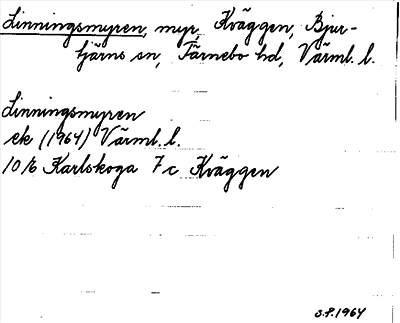 Linningsmyren, myr, Kväggen, Bjur-
tjärns sn, Färnebo hd, Värml. l.
Linningsmyren
ek (1964) Värml. l.
10/6 Karlskoga 7 c Kväggen
S.P. 1964